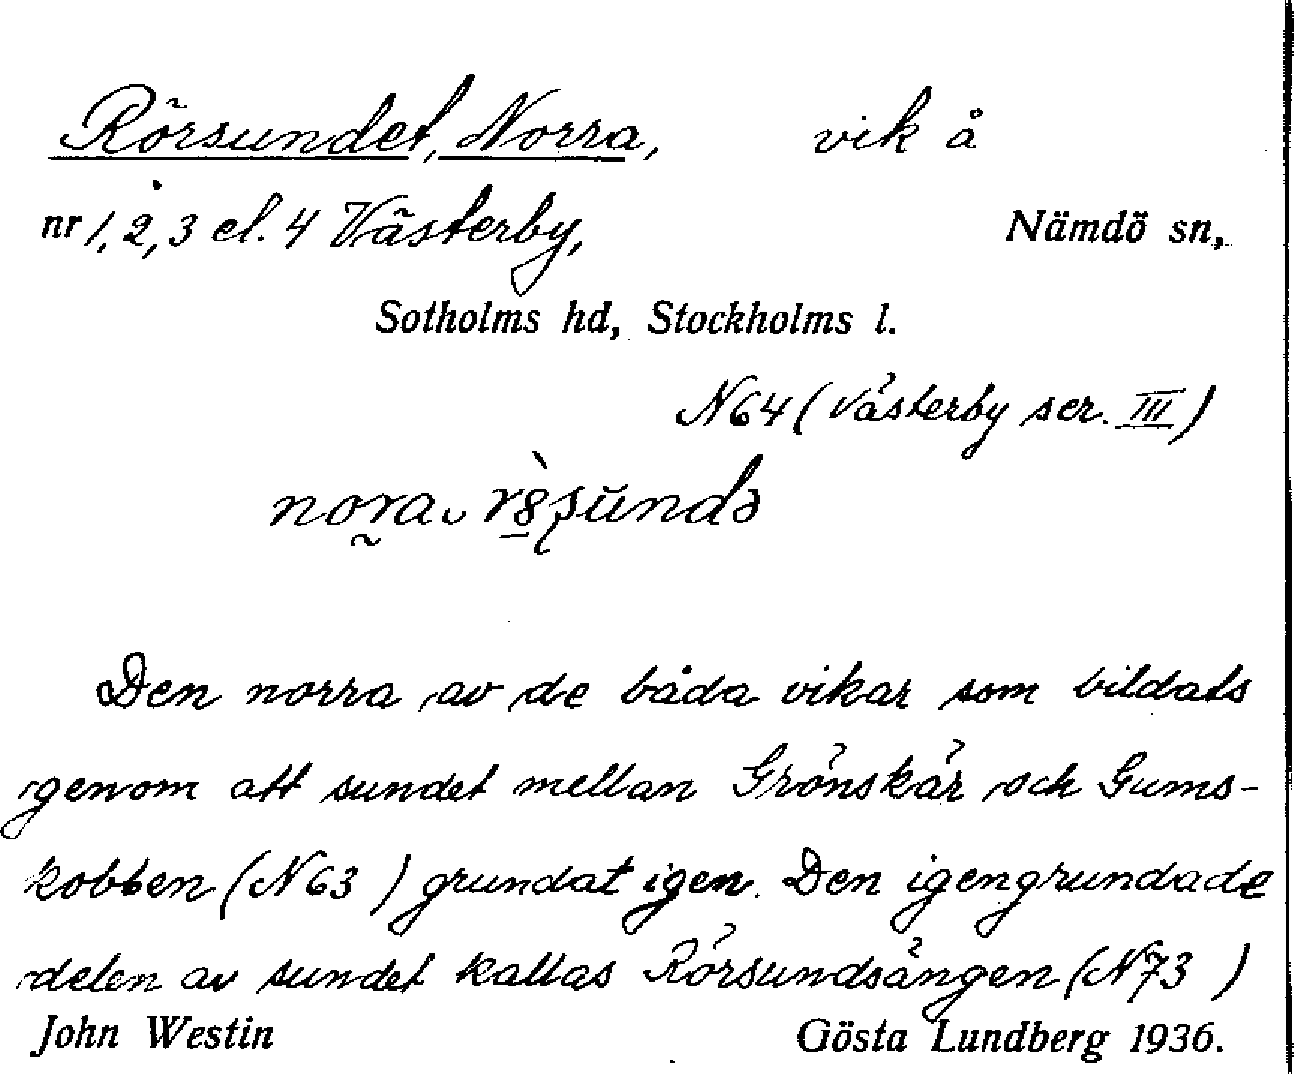 Rörsundet, Norra, vik å
nr 1, 2, 3 el. 4 Västerby, Nämdö sn,
Sotholms hd, Stockholms l.
N64 (Västerby ser. III)
Den norra av de båda vikar som bildats
genom att sundet mellan Grönskär och Gums-
kobben (N63) grundat igen. Den igengrundade
delen av sundet kallas Rörsundsängen (N73)
John Westin Gösta Lundberg 1936.